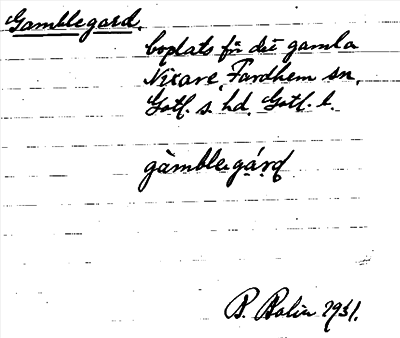 Gamblegard.
boplats för det gamla
Nixare, Fardhem sn,
Gotl. s. hd. Gotl. l.
gàmble gárd
B. Bolin 1931.